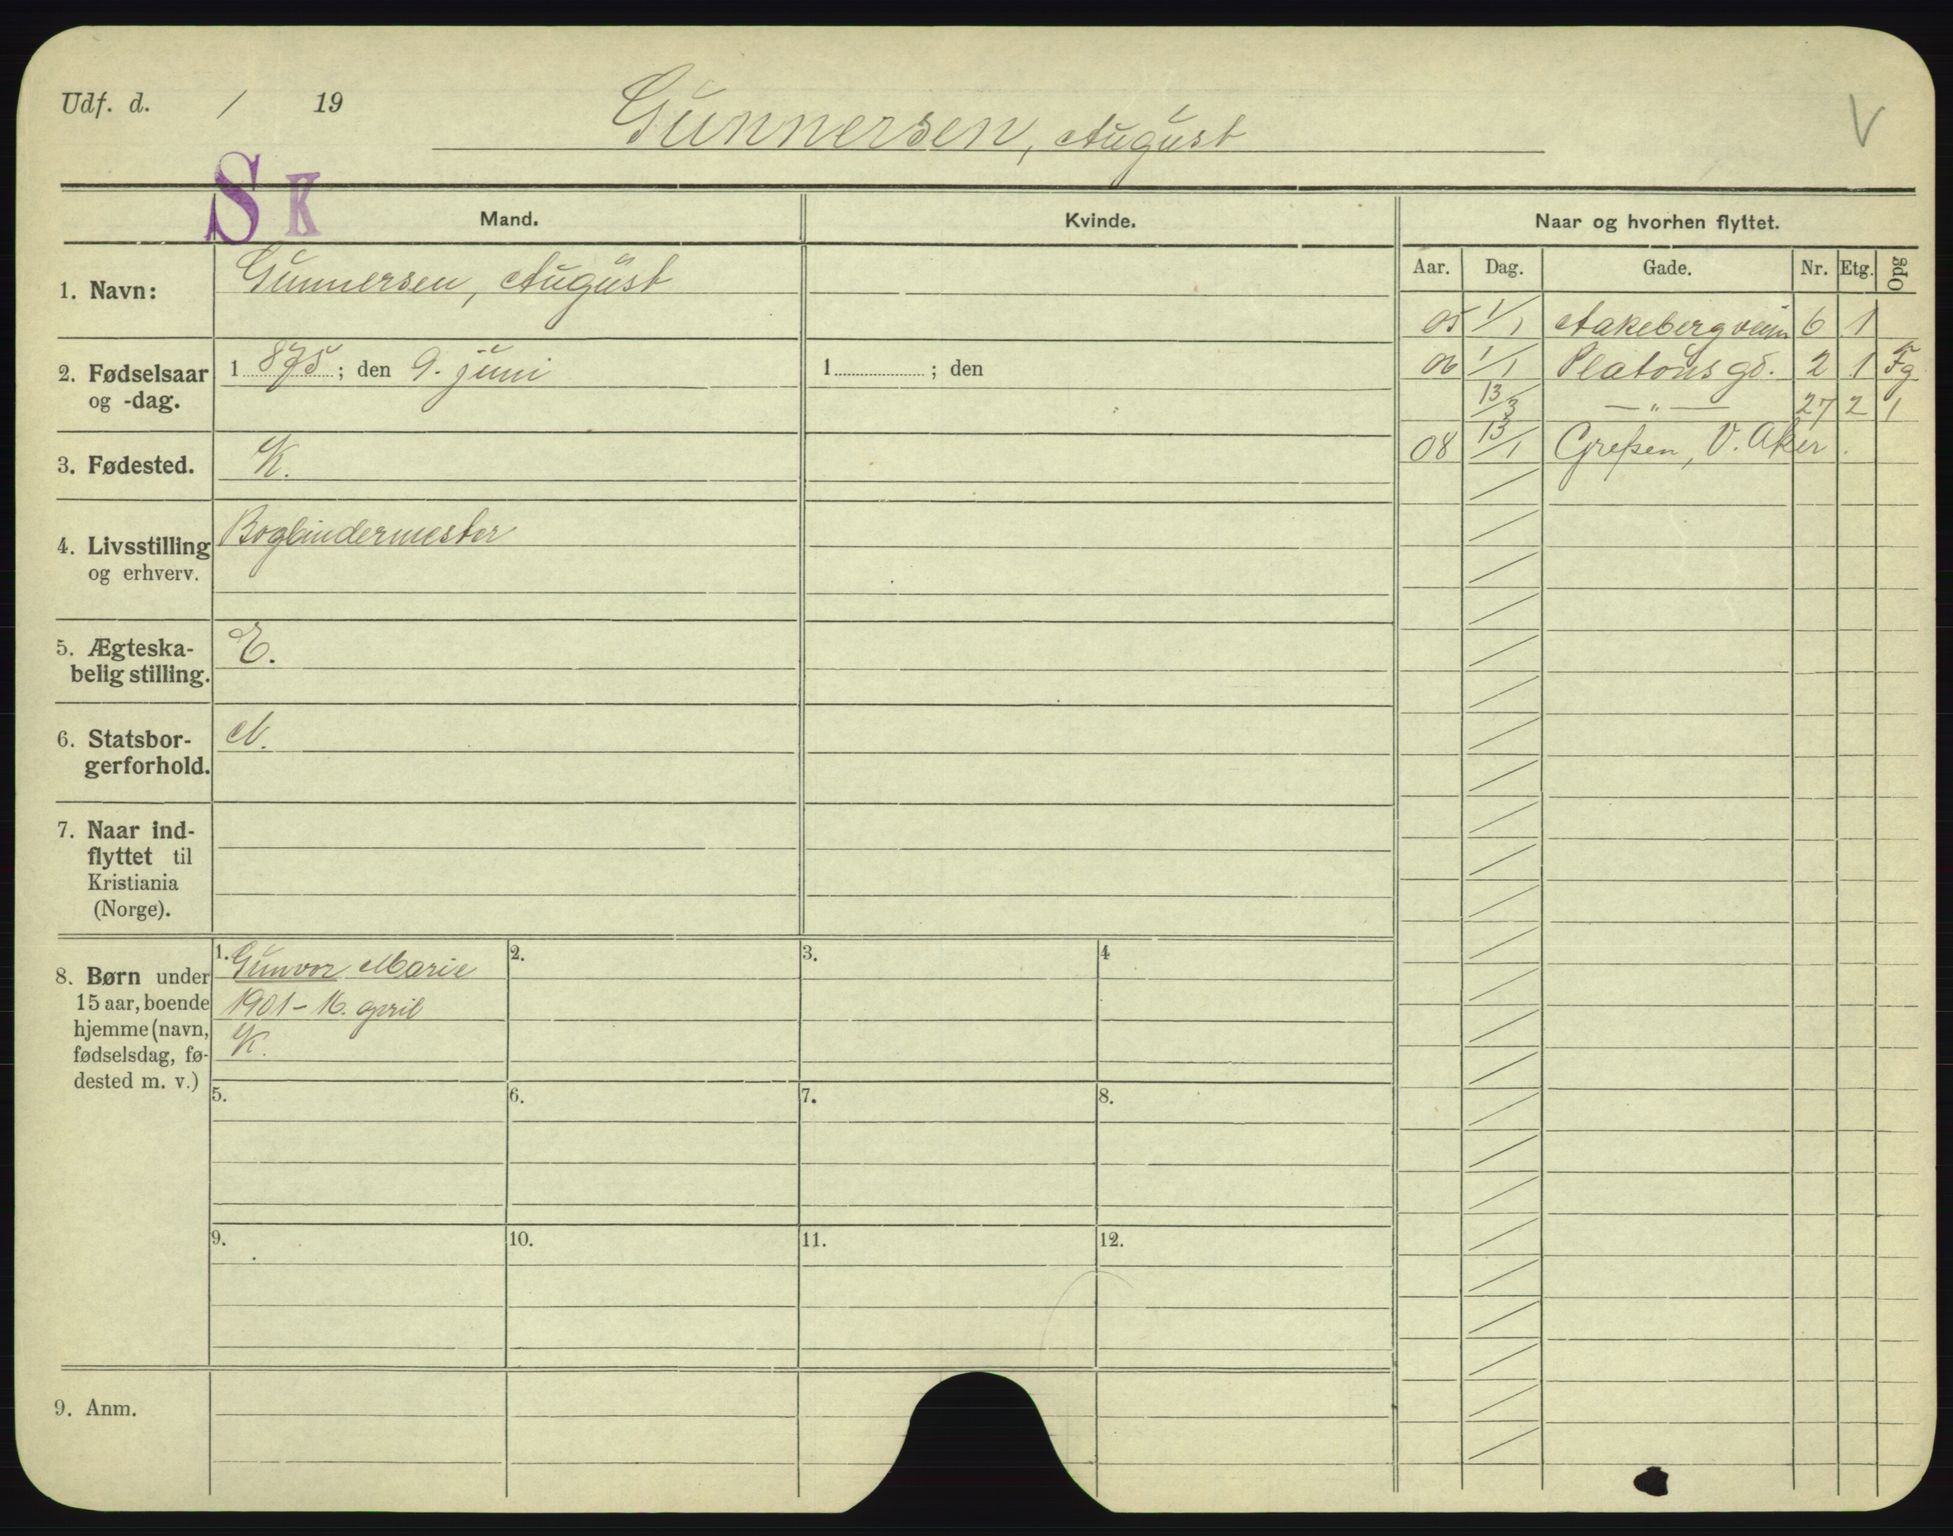 Udf. d. / 19
Gunnersen, August
V
S K
Mand. Kvinde. Naar og hvorhen flyttet.
Aar. Dag. Gade. Nr. Etg. Opg
1. Navn: Gunnersen, August
05 1/1 Aakebergveien 6 1
2. Fødselsaar og -dag. 1 875 ; den 9. juni 1 ; den
06 1/1 Platous gd. 2 1 Fg
13/3 — " — 27 2 1
08 13/1 Grefsen, V. Aker.
3. Fødested. K.
4. Livsstilling
og erhverv.
Bogbindermester
5. Ægteska-
belig stilling.
E.
6. Statsbor-
gerforhold.
N.
7. Naar ind-
flyttet til
Kristiania
(Norge).
8. Børn under
15 aar, boende
hjemme (navn,
fødselsdag, fø-
dested m. v.)
1. Gunvor Marie
1901 - 16. april
K.
2.
3.
4
5.
6.
7.
8.
9.
10.
11.
12.
9. Anm.